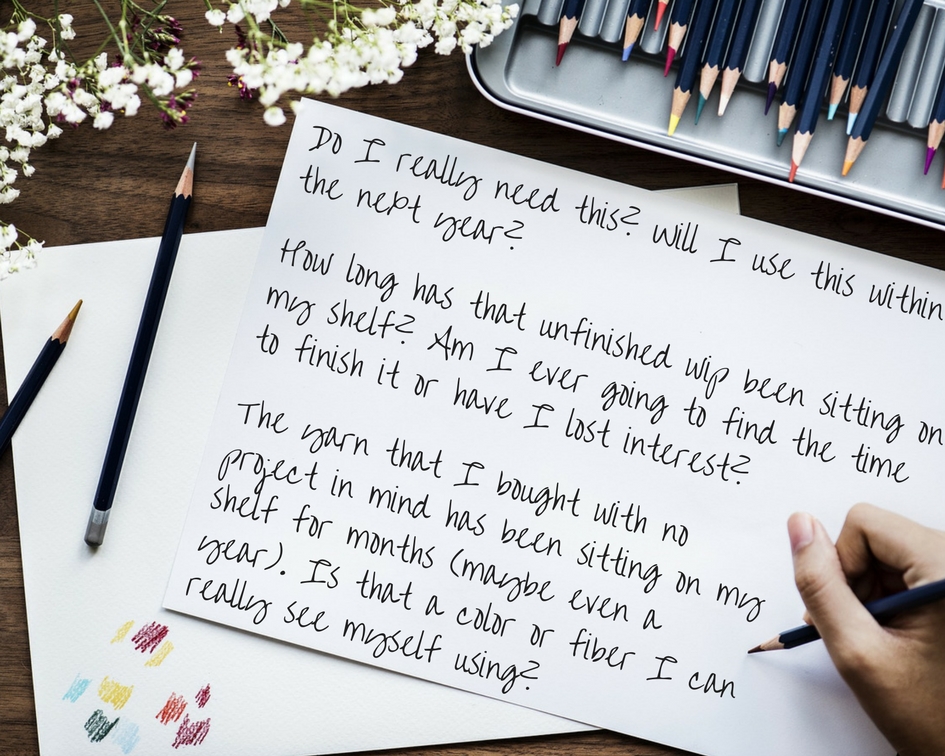 Do I really need this? Will I use this within
the next year?
How long has that unfinished wip been sitting on
my shelf? Am I ever going to find the time
to finish it or have I lost interest?
The yarn that I bought with no
project in mind has been sitting on my
shelf for months (maybe even a
year). Is that a color or fiber I can
really see myself using?